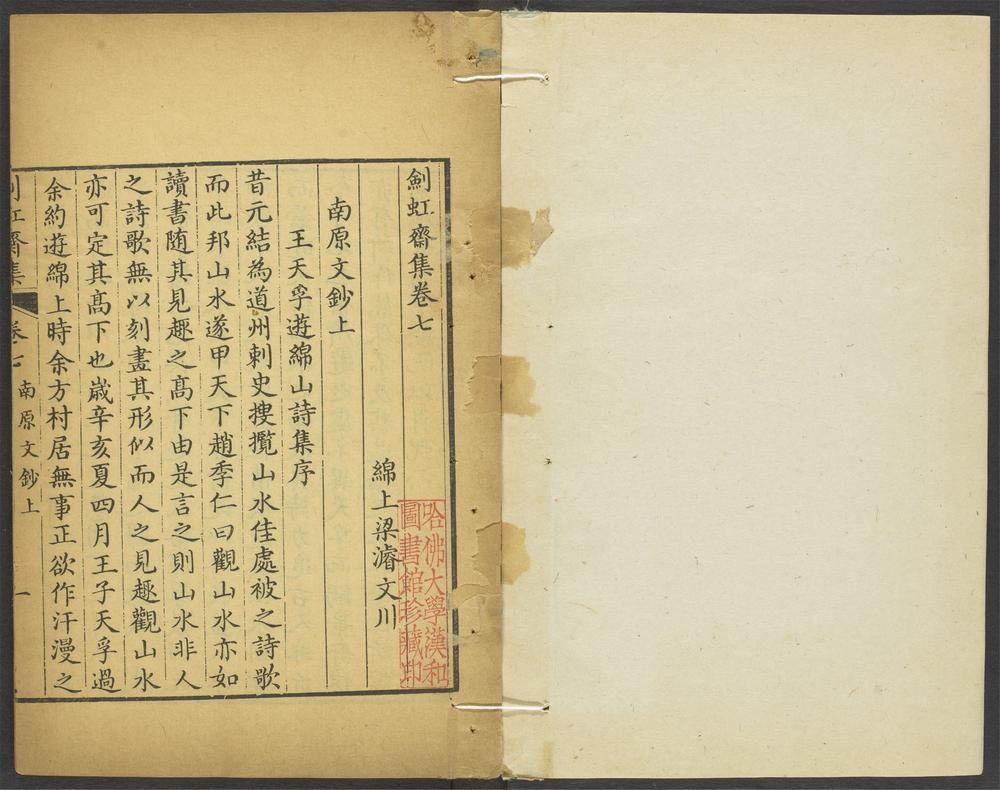 劍虹齋集卷七
綿上梁濬文川
南原文鈔上
王天孚遊綿山詩集序
昔元結為道州刺史搜攬山水佳處被之詩歌
而此邦山水遂甲天下趙季仁曰觀山水亦如
讀書随其見趣之髙下由是言之則山水非人
之詩歌無以刻畫其形似而人之見趣觀山水
亦可定其髙下也歳辛亥夏四月王子天孚過
余約遊綿上時余方村居無事正欲作汗漫之
劍虹齋集 卷七 南原文鈔上 一
哈佛大學漢和
圖書館珍藏印